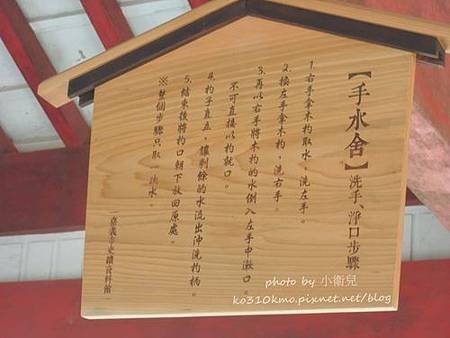 【手水舍】洗手、淨口步驟
1. 右手拿木杓取水，洗左手。
2. 換左手拿木杓，洗右手。
3. 再以右手將木杓的水倒入左手中漱口。
不可直接以杓就口。
4. 杓子直立，讓剩餘的水流出沖洗杓柄。
5. 結束後將杓口朝下放回原處。
※整個步驟只取一次水。
嘉義市史蹟資料館
photo by 小衛兒
ko310kmo.pixnet.net/blog